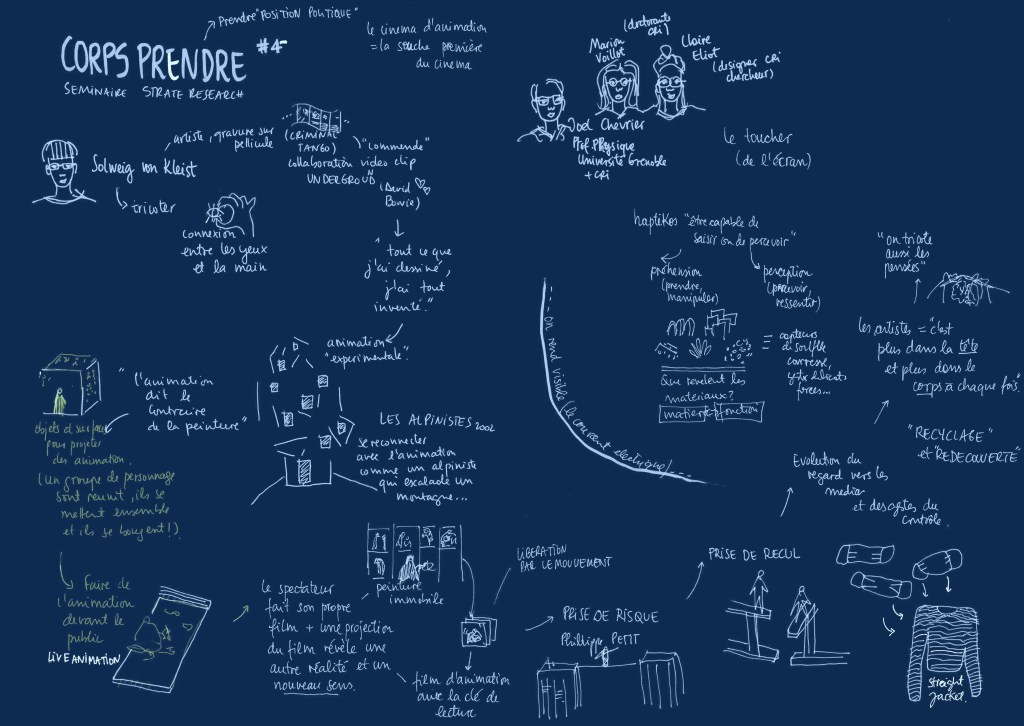 Prendre "POSITION POLITIQUE"
CORPS PRENDRE #4
SEMINAIRE STRATE RESEARCH
le cinema d'animation
= la souche première
du cinema
Solweig von Kleist
artiste, gravure sur
pellicule
(CRIMINAL
TANGO)
"commande"
collaboration video clip
UNDERGROUND
(David
Bowie)
tricoter
connexion
entre les yeux
et la main
"tout ce que
j'ai dessiné,
j'ai tout
inventé."
animation
"experimentale".
"l'animation
dit le
contraire
de la peinture"
objets et surfaces
pour projeter
des animation.
(un groupe de personnage
sont reunit, ils se
mettent ensemble
et ils se bougent!)
LES ALPINISTES 2002
se reconnecter
avec l'animation
comme un alpiniste
qui escalade un
montagne...
faire de
l'animation
devant le
public
LIVE ANIMATION
le spectateur
fait son propre
film + une projection
du film révèle une
autre réalité et un
nouveau sens.
peinture
immobile
film d'animation
avec la clé de
lecture
LIBERATION
PAR LE MOUVEMENT
PRISE DE RISQUE
Philippe PETIT
PRISE DE RECUL
(doctorante
cri)
Marion
Voillot
Claire
Eliot
(designer cri
chercheur)
Joel Chevrier
Prof. Physique
Université Grenoble
+ cri
le toucher
(de l'écran)
haptikos "être capable de
saisir ou de percevoir"
préhension
(prendre,
manipuler)
perception
(percevoir,
ressentir)
= capteurs
de souffle
caresse,
forces...
Que revelent les
materiaux?
matière fonction
on rend visible (le courant electrique)...
"on tricote
aussi les
pensées"
les artistes = "c'est
plus dans la tête
et plus dans le
corps à chaque fois."
"RECYCLAGE"
et "REDECOUVERTE"
Evolution du
regard vers les
media
et des gestes du
contrôle.
straight
jacket.